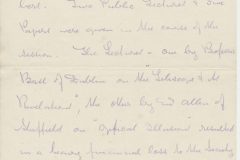 held. Two Public Lectures & two
Papers were given in the course of the
session. The Lectures - one by Professor
Ball of Dublin on the "Telescope & its
Revelations", the other by Ed Allen of
Sheffield on "Optical Illusions" resulted
in a heavy financial loss to the Society